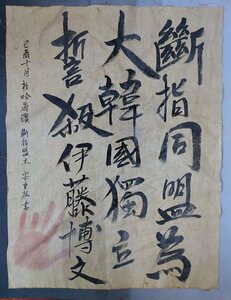 斷指同盟爲
大韓國獨立
誓殺伊藤博文
己酉十月 於哈爾濱 斷指盟主 安重根 書